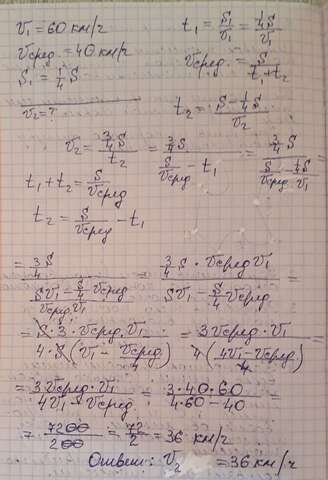 v₁ = 60 км/ч
t₁ = S₁/v₁ = ¼S/v₁
vсред = 40 км/ч
vсред. = S/(t₁+t₂)
S₁ = ¼ S
v₂ = ?
t₂ = (S − ¼S)/v₂
v₂ = ¾S/t₂ = ¾S/(S/vсред − t₁) = ¾S/(S/vсред − ¼S/v₁)
t₁ + t₂ = S/vсред
t₂ = S/vсред − t₁
= (3S/4)/((Sv₁ − S/4 vсред)/(vсред v₁)) = (¾S · vсред v₁)/(Sv₁ − S/4 vсред) =
= (S · 3 · vсред. v₁)/(4 · S(v₁ − vсред/4)) = (3vсред · v₁)/(4(4v₁ − vсред)/4) =
= (3vсред · v₁)/(4v₁ − vсред) = (3 · 40 · 60)/(4 · 60 − 40) =
= 7200/200 = 72/2 = 36 км/ч
Ответ: v₂ = 36 км/ч